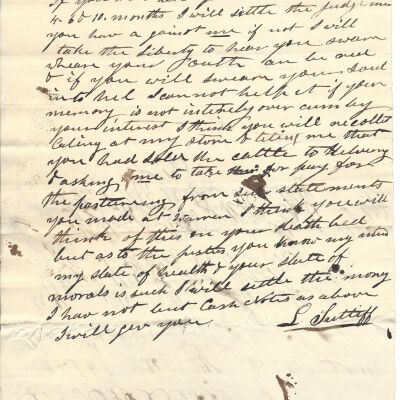 4 6 & 10 months I will settle the judgment
you have a gainst me if not I will
take the liberty to hear you swear
wheare your oauth can be used
& if you will sweare your soul
in to hel I cannot help it if your
memory is not intirely over cum by
your interest I think you will recollect
Caling at my store & teling me that
you had sold the cattle to
& asking me to take for pay for
the pasturing from statements
you made at warren I think you will
think of this on your death bed
but as to the you know my
my state of health & your state of
morals is such I will settle the mony
I hav not but Cash Notes as above
I will gev you L Sutliff